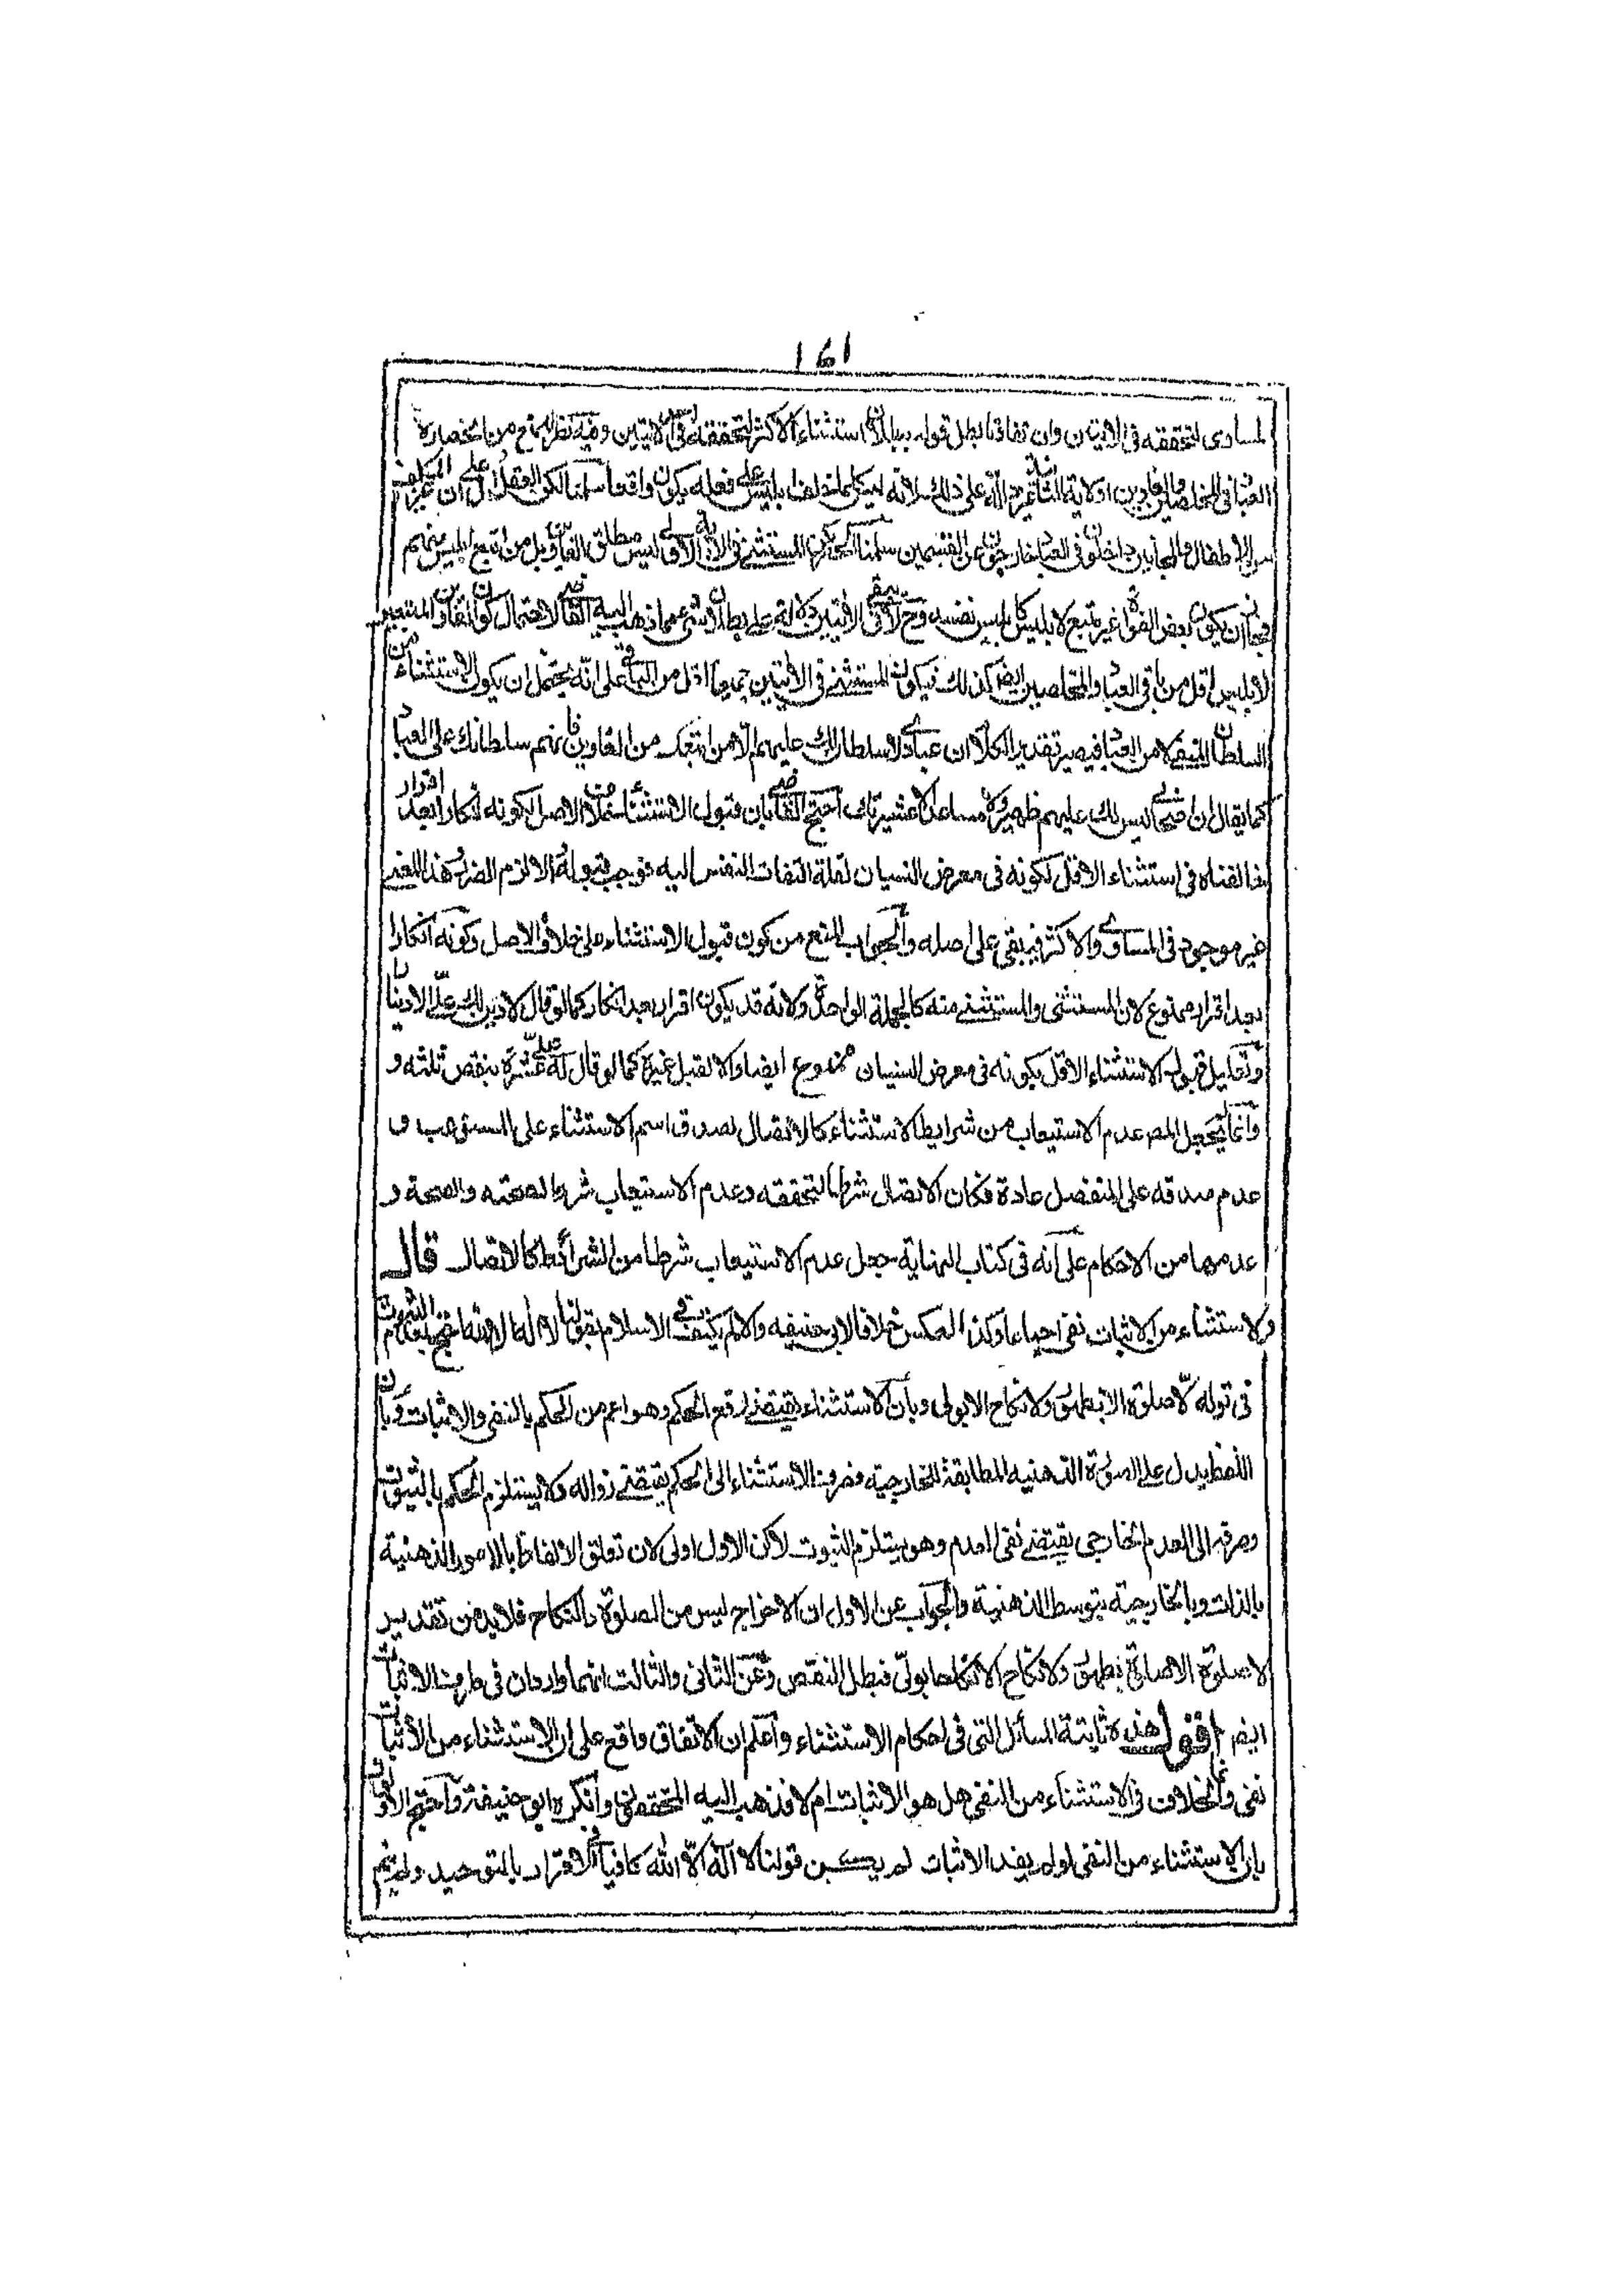 ١٦١
المساوى لتحققه فى الاثنين وان تفاوتا بطل قوله ببطلان استثناء الاكثر لتحققه فى الاثنين وفيه نظر للمنع من انحصار
العباد فى المخلصين والغاوين اولاية الثانية على ذلك لانه ليس كلما حلف ابليس على فعله يكون واقعا سلمنا لكن العقل دل ان
الاطفال والمجانين داخلون فى العباد خارجون عن القسمين سلمنا لكن المستثنى فى الاية الاولى ليس مطلق الغاوين بل من اتبع ابليس منهم
فجاز ان يكون بعض الغواة غير متبع لابليس كابليس نفسه وح لا يبقى فى الايتين دلالة على بطلان شئ مما ذهب اليه القاضى لاحتمال كون الغاوين المتبعين
لابليس اقل من باقى العباد والمخلصين ايضا كذلك فيكون المستثنى فى الايتين جميعا اقل من الباقى على انه يحتمل ان يكون الاستثناء من
السلطان المنفى لا من العباد فيصير تقدير الكلام ان عبادى لا سلطان لك عليهم الا من اتبعك من الغاوين فانهم سلطانك على العباد
كما يقال ان ليس لك عليهم ظهير ولا مساعد الا عشيرتك احتج القاضى بان قبول الاستثناء خلاف الاصل لكونه انكارا بعد اقرار
خالفناه فى استثناء الاقل لكونه فى معرض النسيان لقلة التفات النفس اليه فوجب قبوله والا لزم الضرر وهذا المعنى
غير موجود فى المساوى والاكثر فيبقى على اصله والجواب المنع من كون قبول الاستثناء على خلاف الاصل وكونه انكارا
بعد اقرار ممنوع لان المستثنى والمستثنى منه كالجملة الواحدة ولانه قد يكون اقرارا بعد انكار كما لو قال لا دين لك على الا دينارا
وتعليل قبول الاستثناء الاقل بكونه فى معرض النسيان ممنوع ايضا والا لقبل غيره كما لو قال له على عشرة ينقص ثلثة و
وانما لم يجعل المصر عدم الاستيعاب من شرايط الاستثناء كالاتصال لصدق اسم الاستثناء على المستوعب و
عدم صدقه على المنفصل عادة فكان الاتصال شرطا لتحققه وعدم الاستيعاب شرطا لصحته والصحة و
عدمها من الاحكام على انه فى كتاب النهاية جعل عدم الاستيعاب شرطا من الشرائط كالاتصال قال
والاستثناء من الاثبات نفى اجماعا وكذا العكس خلافا لابى حنيفه والا لم يكتف فى الاسلام بقولنا لا اله الا الله احتج بعدم الثبوت
فى قوله لا صلوة الا بطهور ولا نكاح الا بولى وبان الاستثناء يقتضى رفع الحكم وهو اعم من الحكم بالنفى والاثبات وبان
اللفظ يدل على الصورة الذهنيه المطابقة للخارجية وصرف الاستثناء الى الحكم يقتضى زواله ولا يستلزم الحكم بالثبوت
وصرفه الى العدم الخارجى يقتضى نفى العدم وهو يستلزم الثبوت لاكن الاول اولى لان تعلق الالفاظ بالامور الذهنية
بالذات وبالخارجية بتوسط الذهنية والجواب عن الاول ان الاخراج ليس من الصلوة والنكاح فلا بد من تقدير
لا صلوة الا صلوة بطهور ولا نكاح الا نكاحا بولى فبطل النقض وعن الثانى والثالث انهما واردان فى طرف الاثبات
ايضا اقول هذه ثانية المسائل التى فى احكام الاستثناء واعلم ان الاتفاق واقع على ان الاستثناء من الاثبات
نفى وانما الخلاف فى الاستثناء من النفى هل هو الاثبات ام لا فذهب اليه المحققون وانكره ابو حنيفة واحتج الاولون
بان الاستثناء من النفى لو لم يفد الاثبات لم يكن قولنا لا اله الا الله كافيا فى الاقرار بالتوحيد ولم يتم